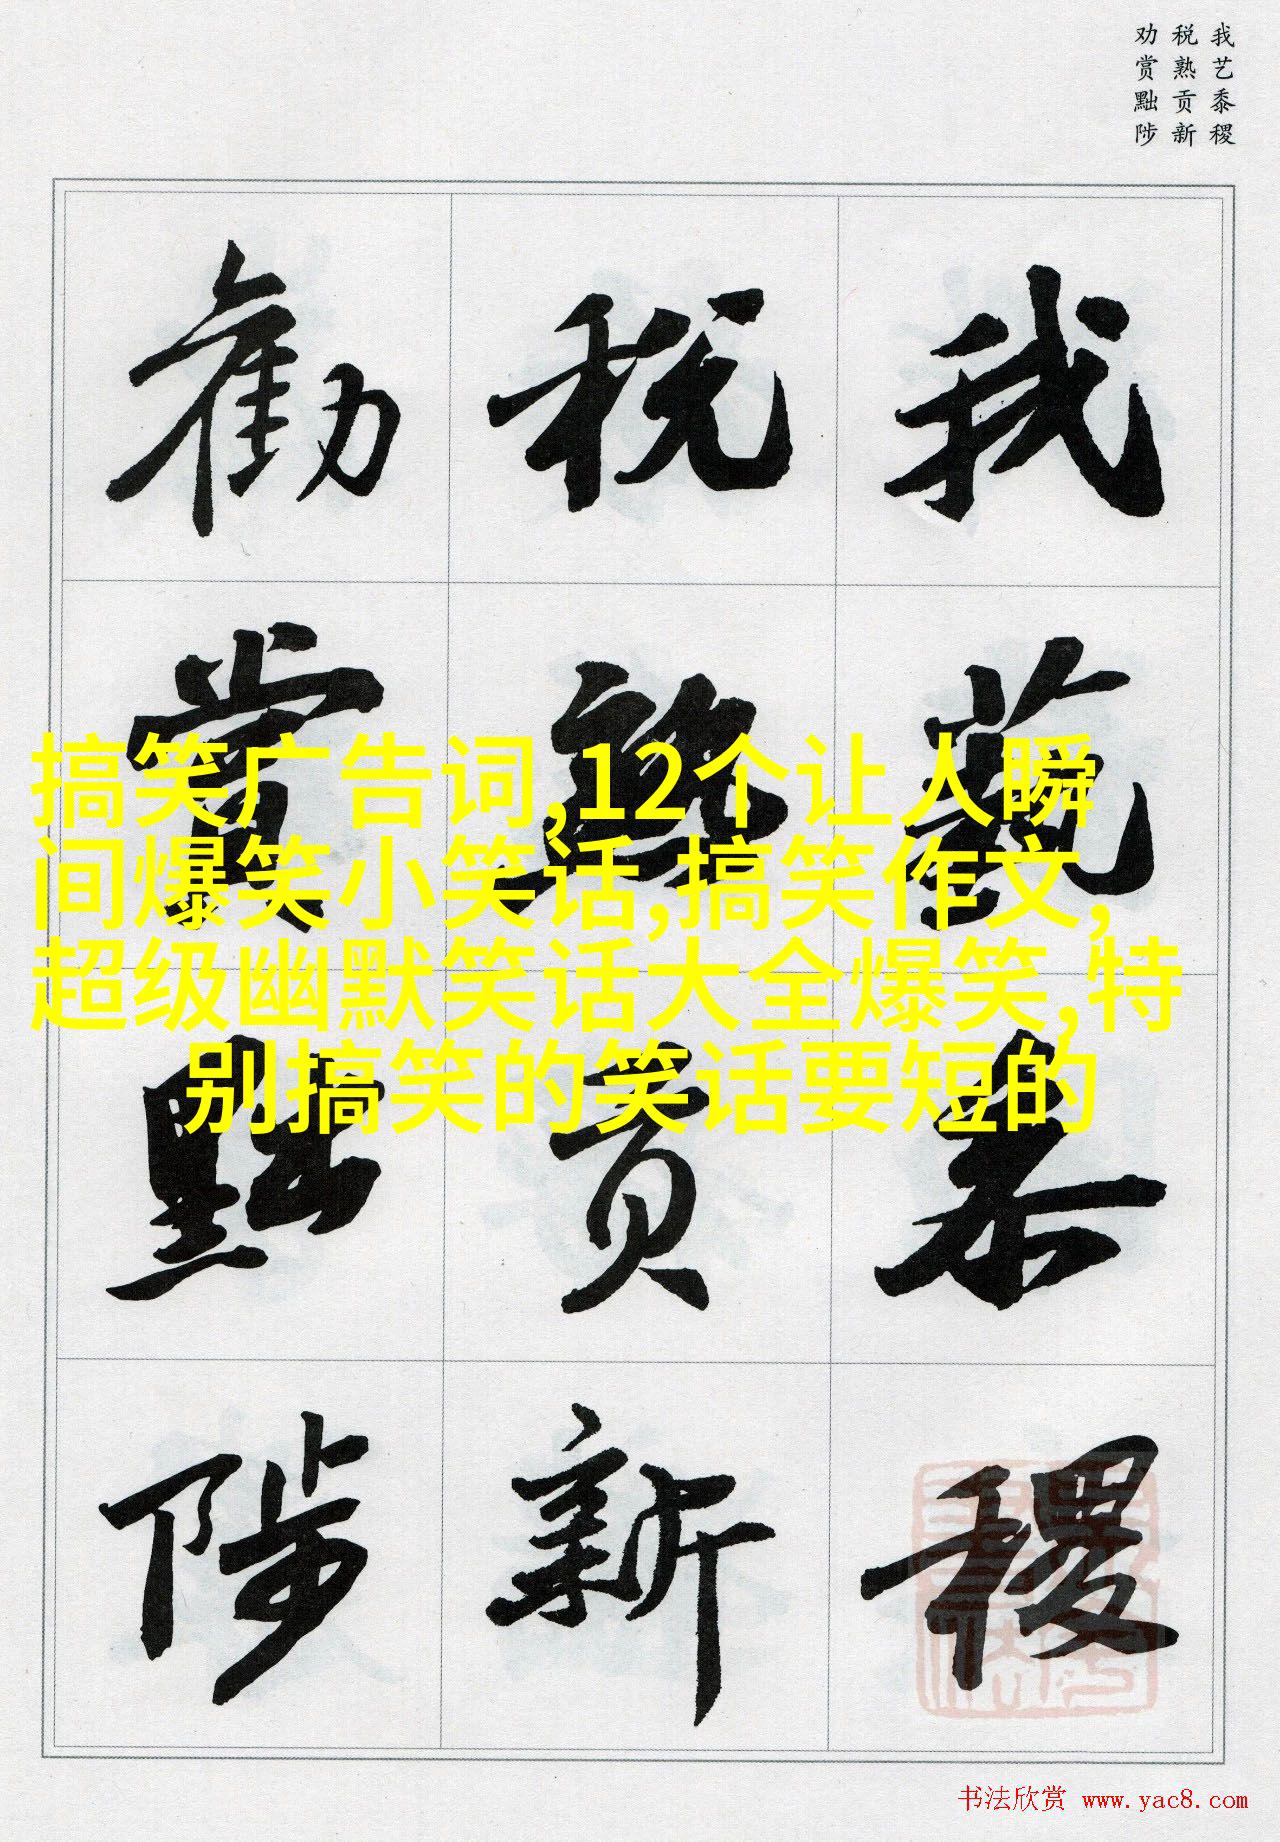 我艺黍稷
税熟贡新
劝赏黜陟
我藝黍稷
税熟贡新
勸賞黜陟
搞笑广告词,12个让人瞬
间爆笑小笑话,搞笑作文,
超级幽默笑话大全爆笑,特
别搞笑的笑话要短的
书法欣赏 www.yac8.com